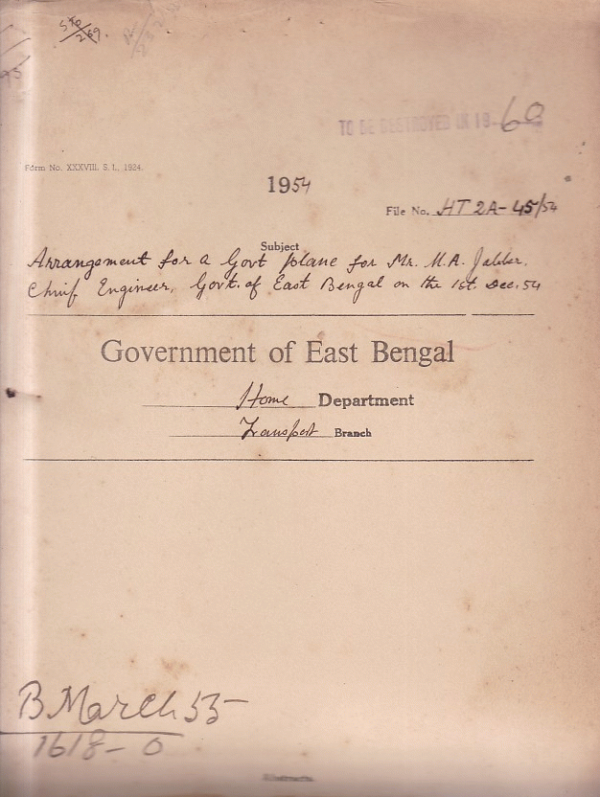 TO BE DESTROYED IN 19 60
Form No. XXXVIII. S. I., 1924.
1954
File No. HT 2A-45/54
Subject
Arrangement for a Govt plane for Mr. M.A. Jabber.
Chief Engineer, Govt. of East Bengal on the 1st. Dec. 54
Government of East Bengal
Home Department
Transport Branch
B March 55
1618-0